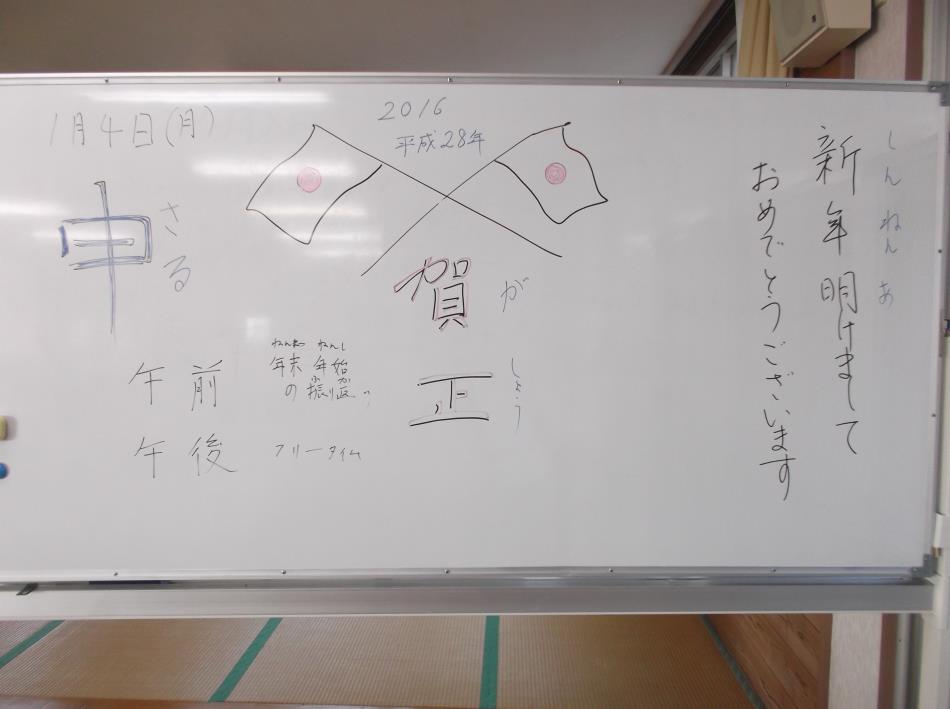 1月4日(月)
2016
平成28年
しんねん あ
新年明けまして
おめでとうございます
申
さる
賀
が
正
しょう
午前
ねんまつ ねんし
年末年始
ふ かえ
の振り返り
午後
フリータイム